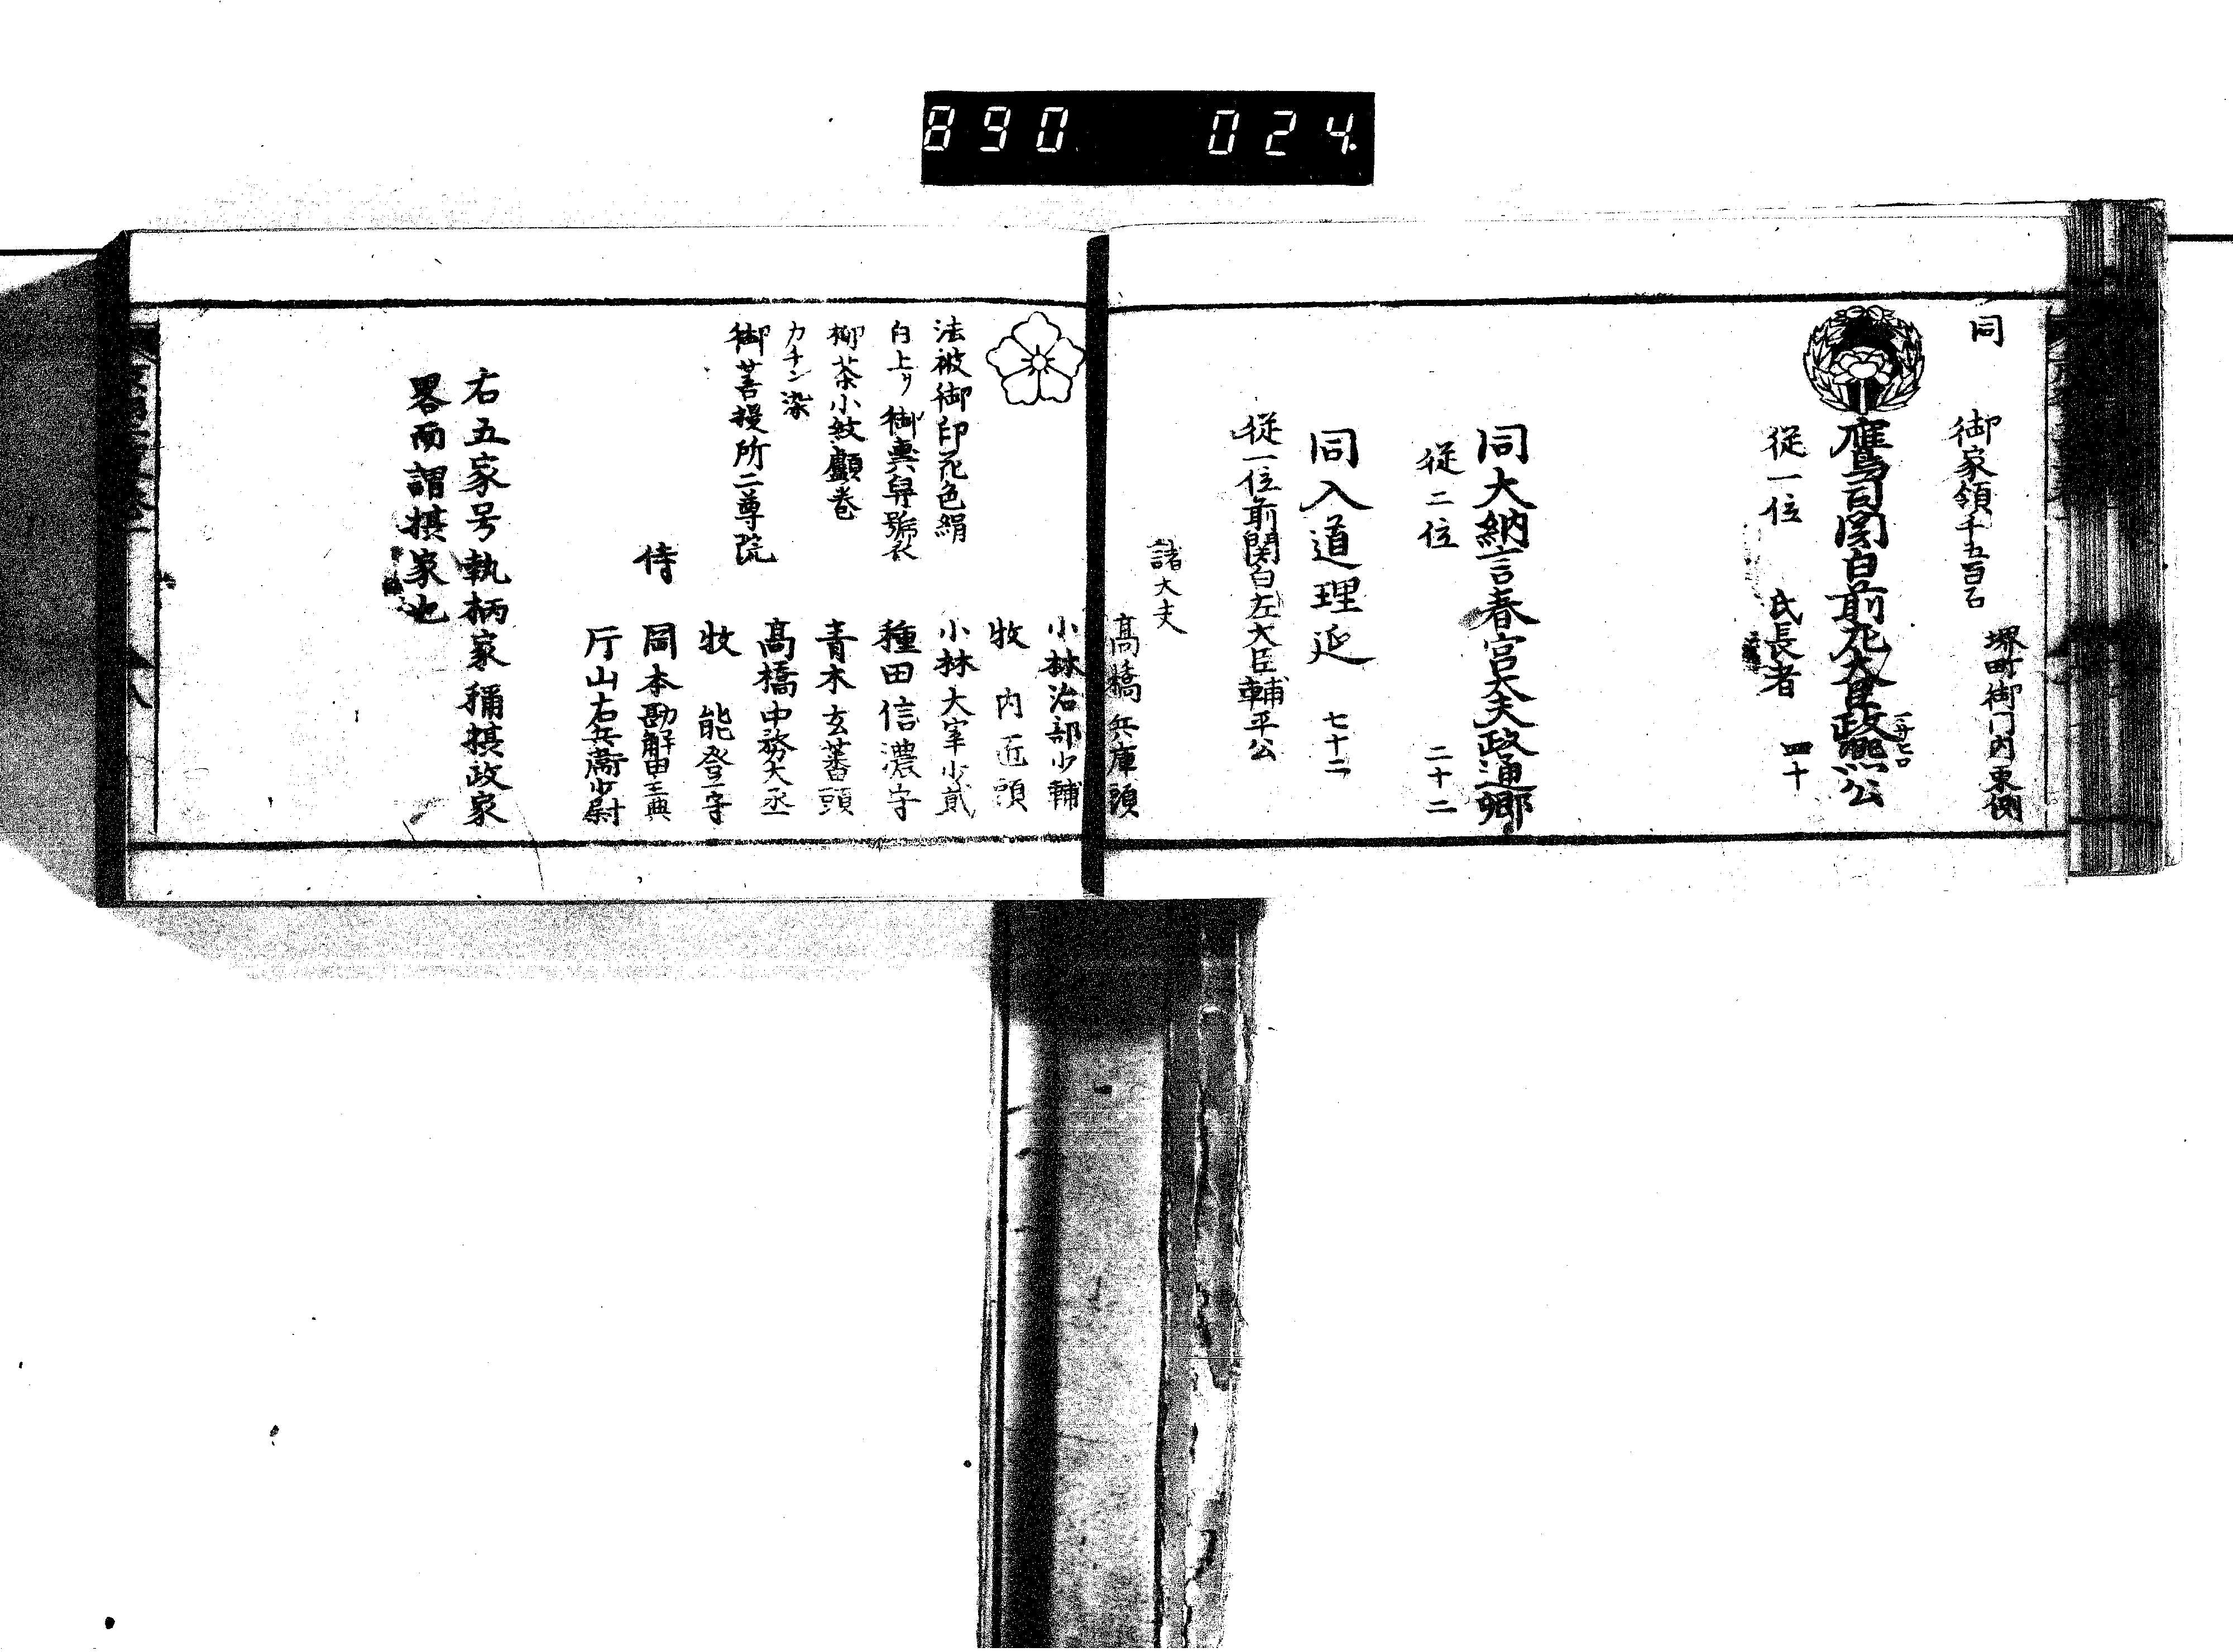 890 024
同
御家領千五百石
堺町御門内東側
鷹司関白前左大臣政熙公
従一位 氏長者 四十
同大納言春宮大夫政通卿
従二位 二十二
同入道理延 七十二
従一位前関白左大臣輔平公
諸大夫
高橋兵庫頭
小林治部少輔
牧内匠頭
小林大宰少貳
種田信濃守
青木玄蕃頭
高橋中務大丞
牧能登守
侍
岡本勘解由主典
庁山右兵衛少尉
法被御印花色絹
白上リ御輿舁
柳茶小紋
カチン染
御菩提所二尊院
右五家号執柄家稱摂政家
畧而謂摂家也